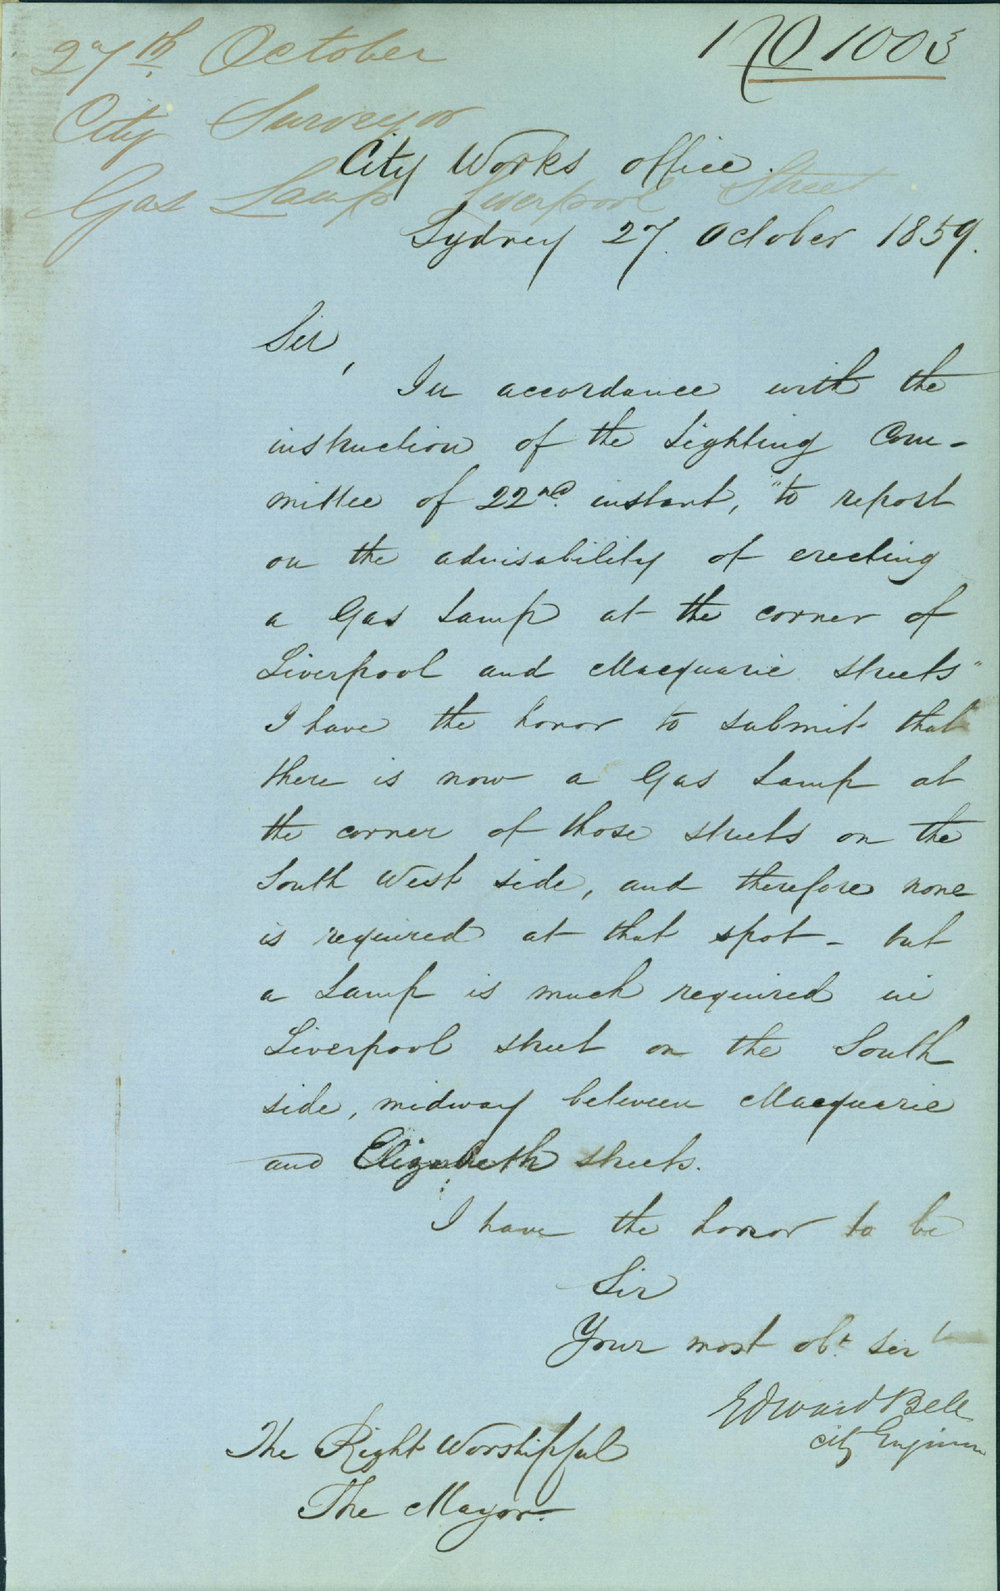 27th October
No 1003
City Surveyor
Gas Lamp Liverpool Street
City Works office.
Sydney 27. October 1859.
Sir,
In accordance with the
instruction of the Lighting Com-
mittee of 22nd. instant, "to report
on the advisability of erecting
a Gas Lamp at the corner of
Liverpool and Macquarie streets"
I have the honor to submit that
there is now a Gas Lamp at
the corner of those streets on the
South West side, and therefore none
is required at that spot - but
a Lamp is much required in
Liverpool street on the South
side, midway between Macquarie
and Elizabeth streets.
I have the honor to be
Sir
Your most obt. sert
Edward Bell
City Engineer
The Right Worshipful
The Mayor.